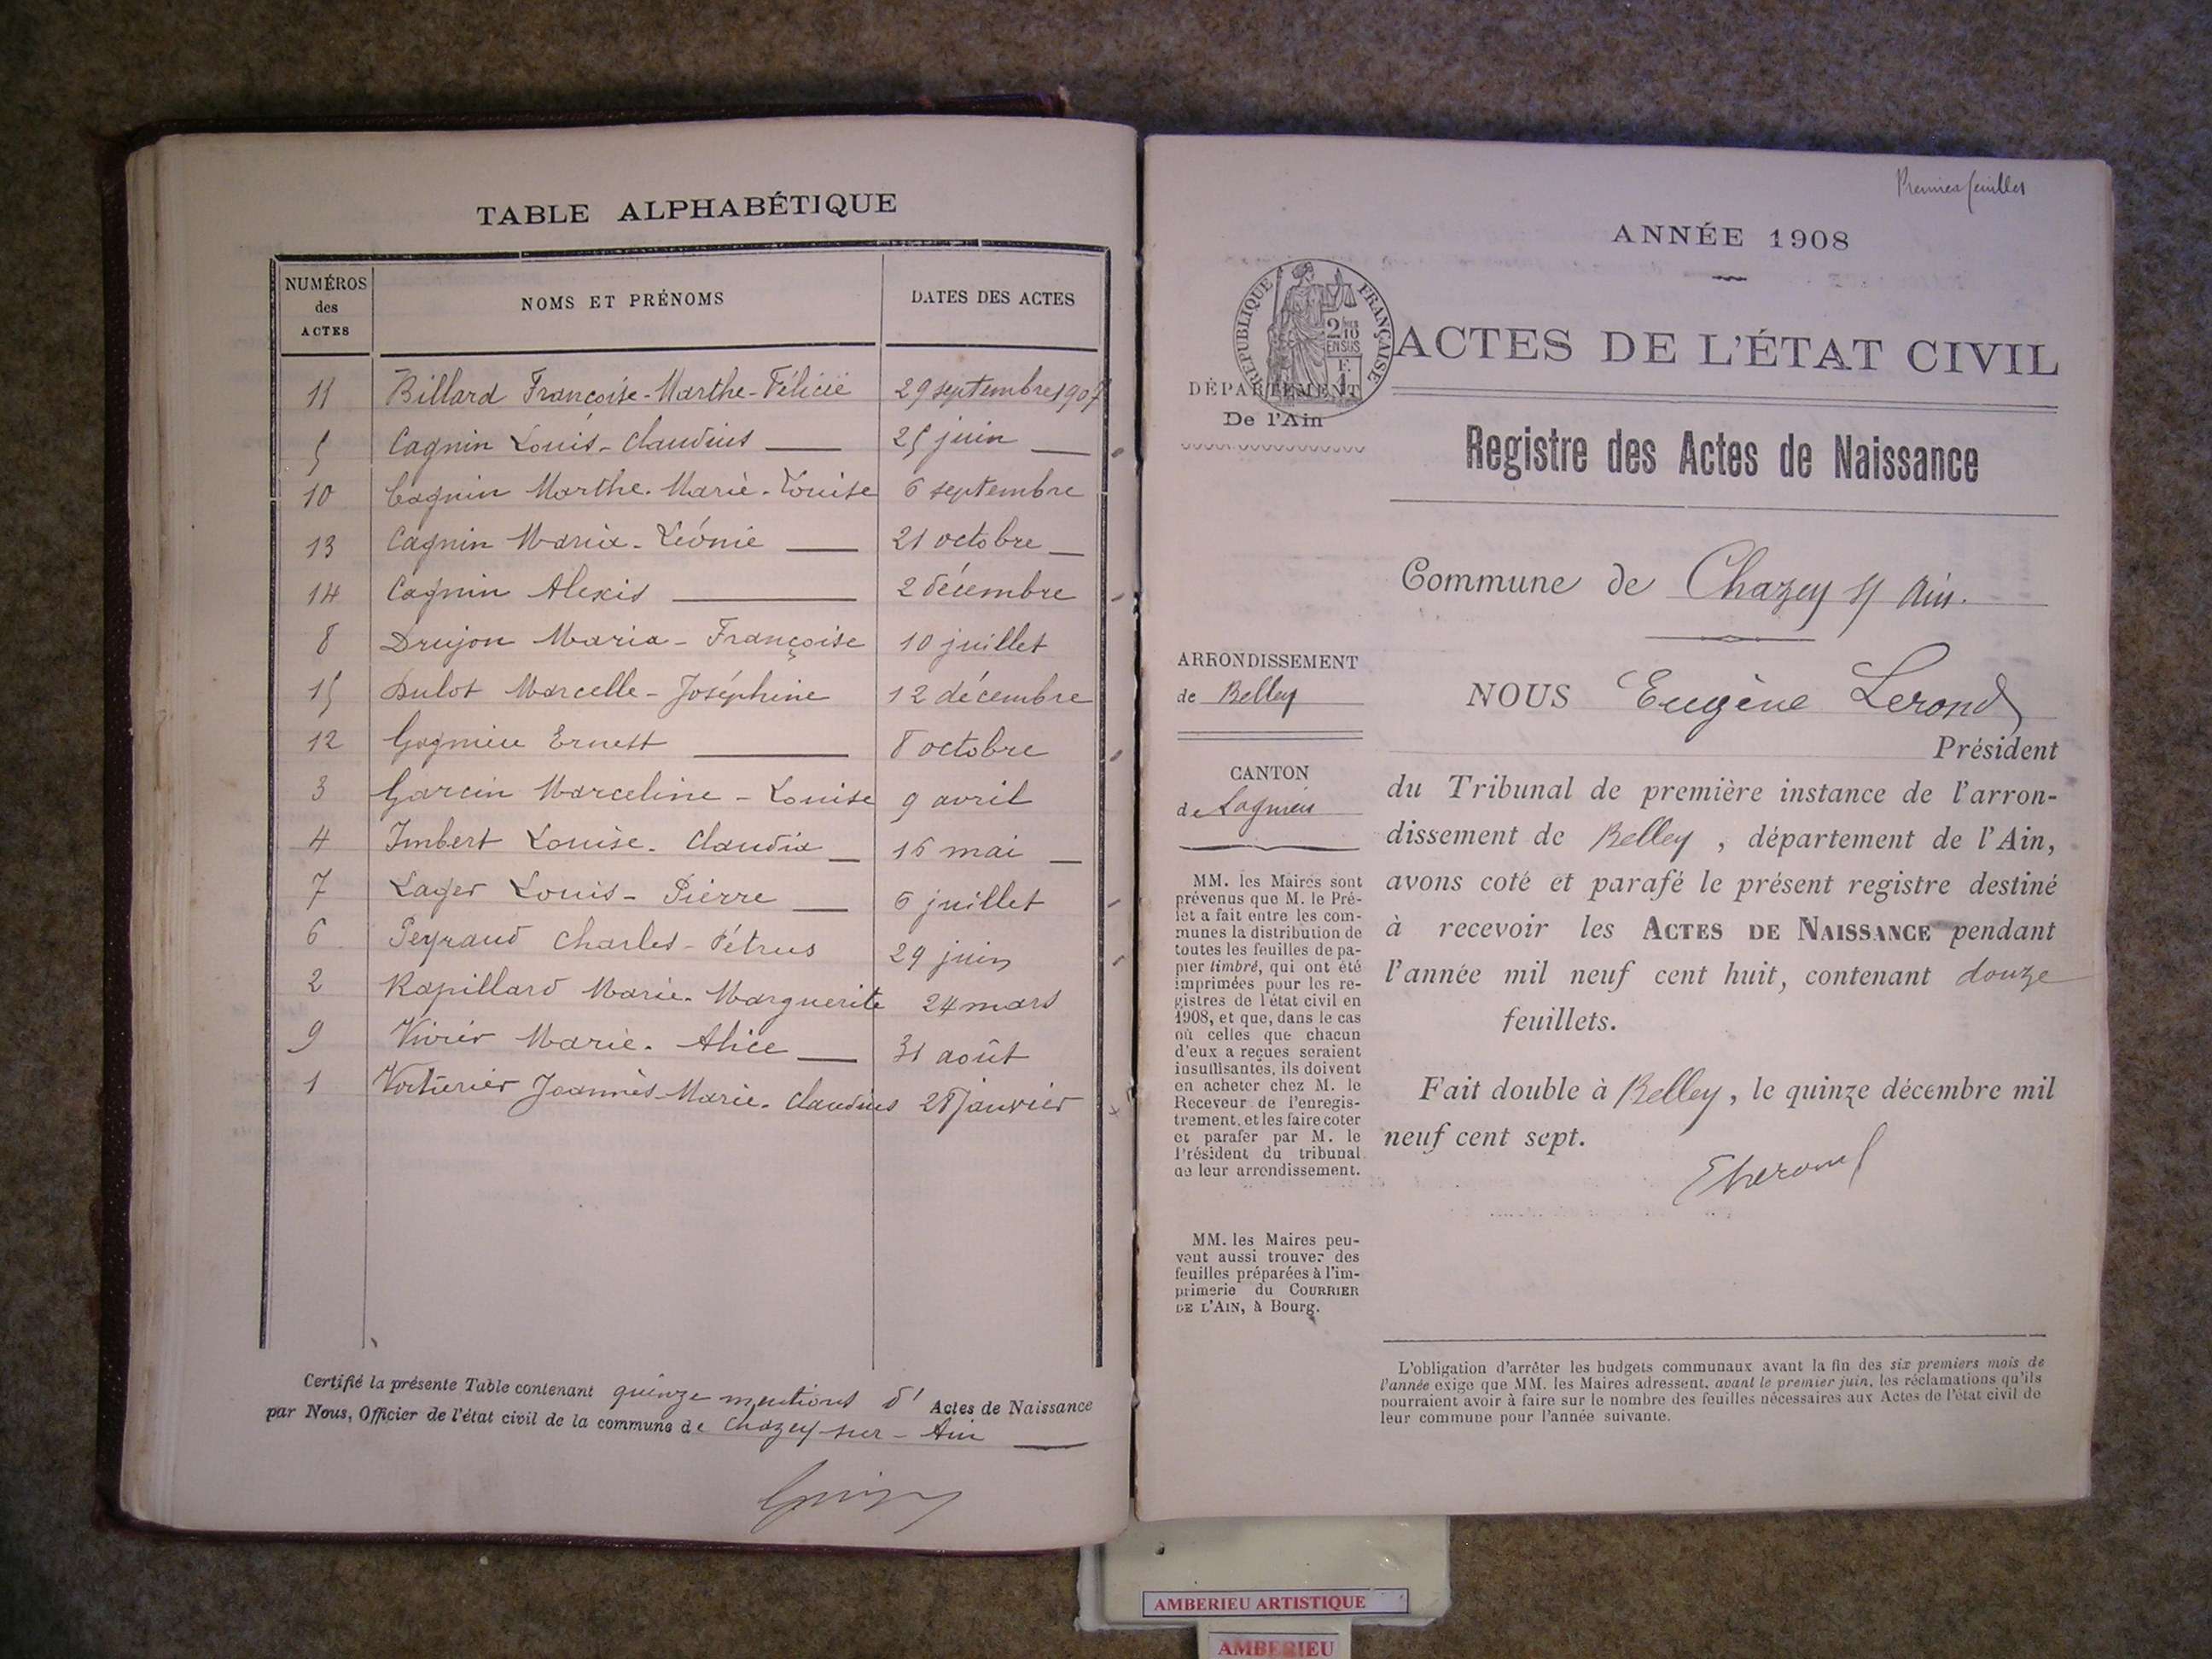 TABLE ALPHABÉTIQUE
NUMÉROS des ACTES
NOMS ET PRÉNOMS
DATES DES ACTES
11 Billard Françoise-Marthe-Félicie 29 septembre 1907
5 Cagnin Louis-Claudius 25 juin
10 Cagnin Marthe-Marie-Louise 6 septembre
13 Cagnin Maria-Léonie 21 octobre
14 Cagnin Alexis 2 décembre
8 Drujon Maria-Françoise 10 juillet
15 Dulot Marcelle-Joséphine 12 décembre
12 Gagnieu Ernest 8 octobre
3 Garcin Marceline-Louise 9 avril
4 Imbert Louise-Claudia 16 mai
7 Lager Louis-Pierre 6 juillet
6 Peyraud Charles-Pétrus 29 juin
2 Rapillard Marie-Marguerite 24 mars
9 Vivier Marie-Alice 31 août
1 Joannès-Marie-Claudius 28 janvier
Certifié la présente Table contenant quinze mentions d' Actes de Naissance
par Nous, Officier de l'état civil de la commune de Chazey-sur-Ain
Premier feuillet
ANNÉE 1908
RÉPUBLIQUE FRANÇAISE
2/10 EN SUS
1 F.
ACTES DE L'ÉTAT CIVIL
DÉPARTEMENT
De l'Ain
Registre des Actes de Naissance
Commune de Chazey s/ Ain.
ARRONDISSEMENT
de Belley
NOUS Eugène Lerond
Président
CANTON
de Lagnieu
du Tribunal de première instance de l'arron-
dissement de Belley, département de l'Ain,
avons coté et parafé le présent registre destiné
à recevoir les ACTES DE NAISSANCE pendant
l'année mil neuf cent huit, contenant douze
feuillets.
Fait double à Belley, le quinze décembre mil
neuf cent sept.
ELerond
MM. les Maires sont
prévenus que M. le Pré-
fet a fait entre les com-
munes la distribution de
toutes les feuilles de pa-
pier timbré, qui ont été
imprimées pour les re-
gistres de l'état civil en
1908, et que, dans le cas
où celles que chacun
d'eux a reçues seraient
insuffisantes, ils doivent
en acheter chez M. le
Receveur de l'enregis-
trement, et les faire coter
et parafer par M. le
Président du tribunal
de leur arrondissement.
MM. les Maires peu-
vent aussi trouver des
feuilles préparées à l'im-
primerie du COURRIER
DE L'AIN, à Bourg.
L'obligation d'arrêter les budgets communaux avant la fin des six premiers mois de
l'année exige que MM. les Maires adressent, avant le premier juin, les réclamations qu'ils
pourraient avoir à faire sur le nombre des feuilles nécessaires aux Actes de l'état civil de
leur commune pour l'année suivante.
AMBERIEU ARTISTIQUE
AMBERIEU